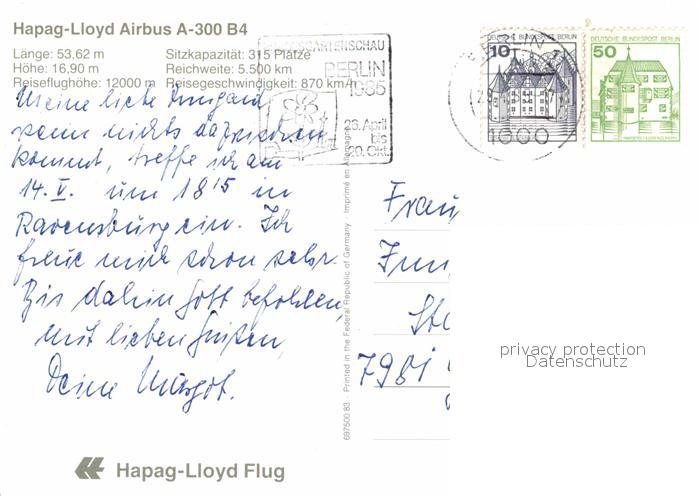 Hapag-Lloyd Airbus A-300 B4
Länge: 53,62 m Sitzkapazität: 315 Plätze
Höhe: 16,90 m Reichweite: 5.500 km
Reiseflughöhe: 12000 m Reisegeschwindigkeit: 870 km/h
Meine liebe Irmgard
wenn nichts dazwischen
kommt, treffe ich am
14. V. um 18 15 in
Ravensburg ein. Ich
freue mich schon sehr.
Bis dahin Gott befohlen,
mit lieben Grüßen,
Deine Margot.
Hapag-Lloyd Flug
697500.83 · Printed in the Federal Republic of Germany · Imprimé en Allemagne
BUNDESGARTENSCHAU
BERLIN
1985
26. April
bis
20. Okt.
BERLIN
1000
DEUTSCHE BUNDESPOST BERLIN
10
DEUTSCHE BUNDESPOST BERLIN
50
Frau
7981
privacy protection
Datenschutz